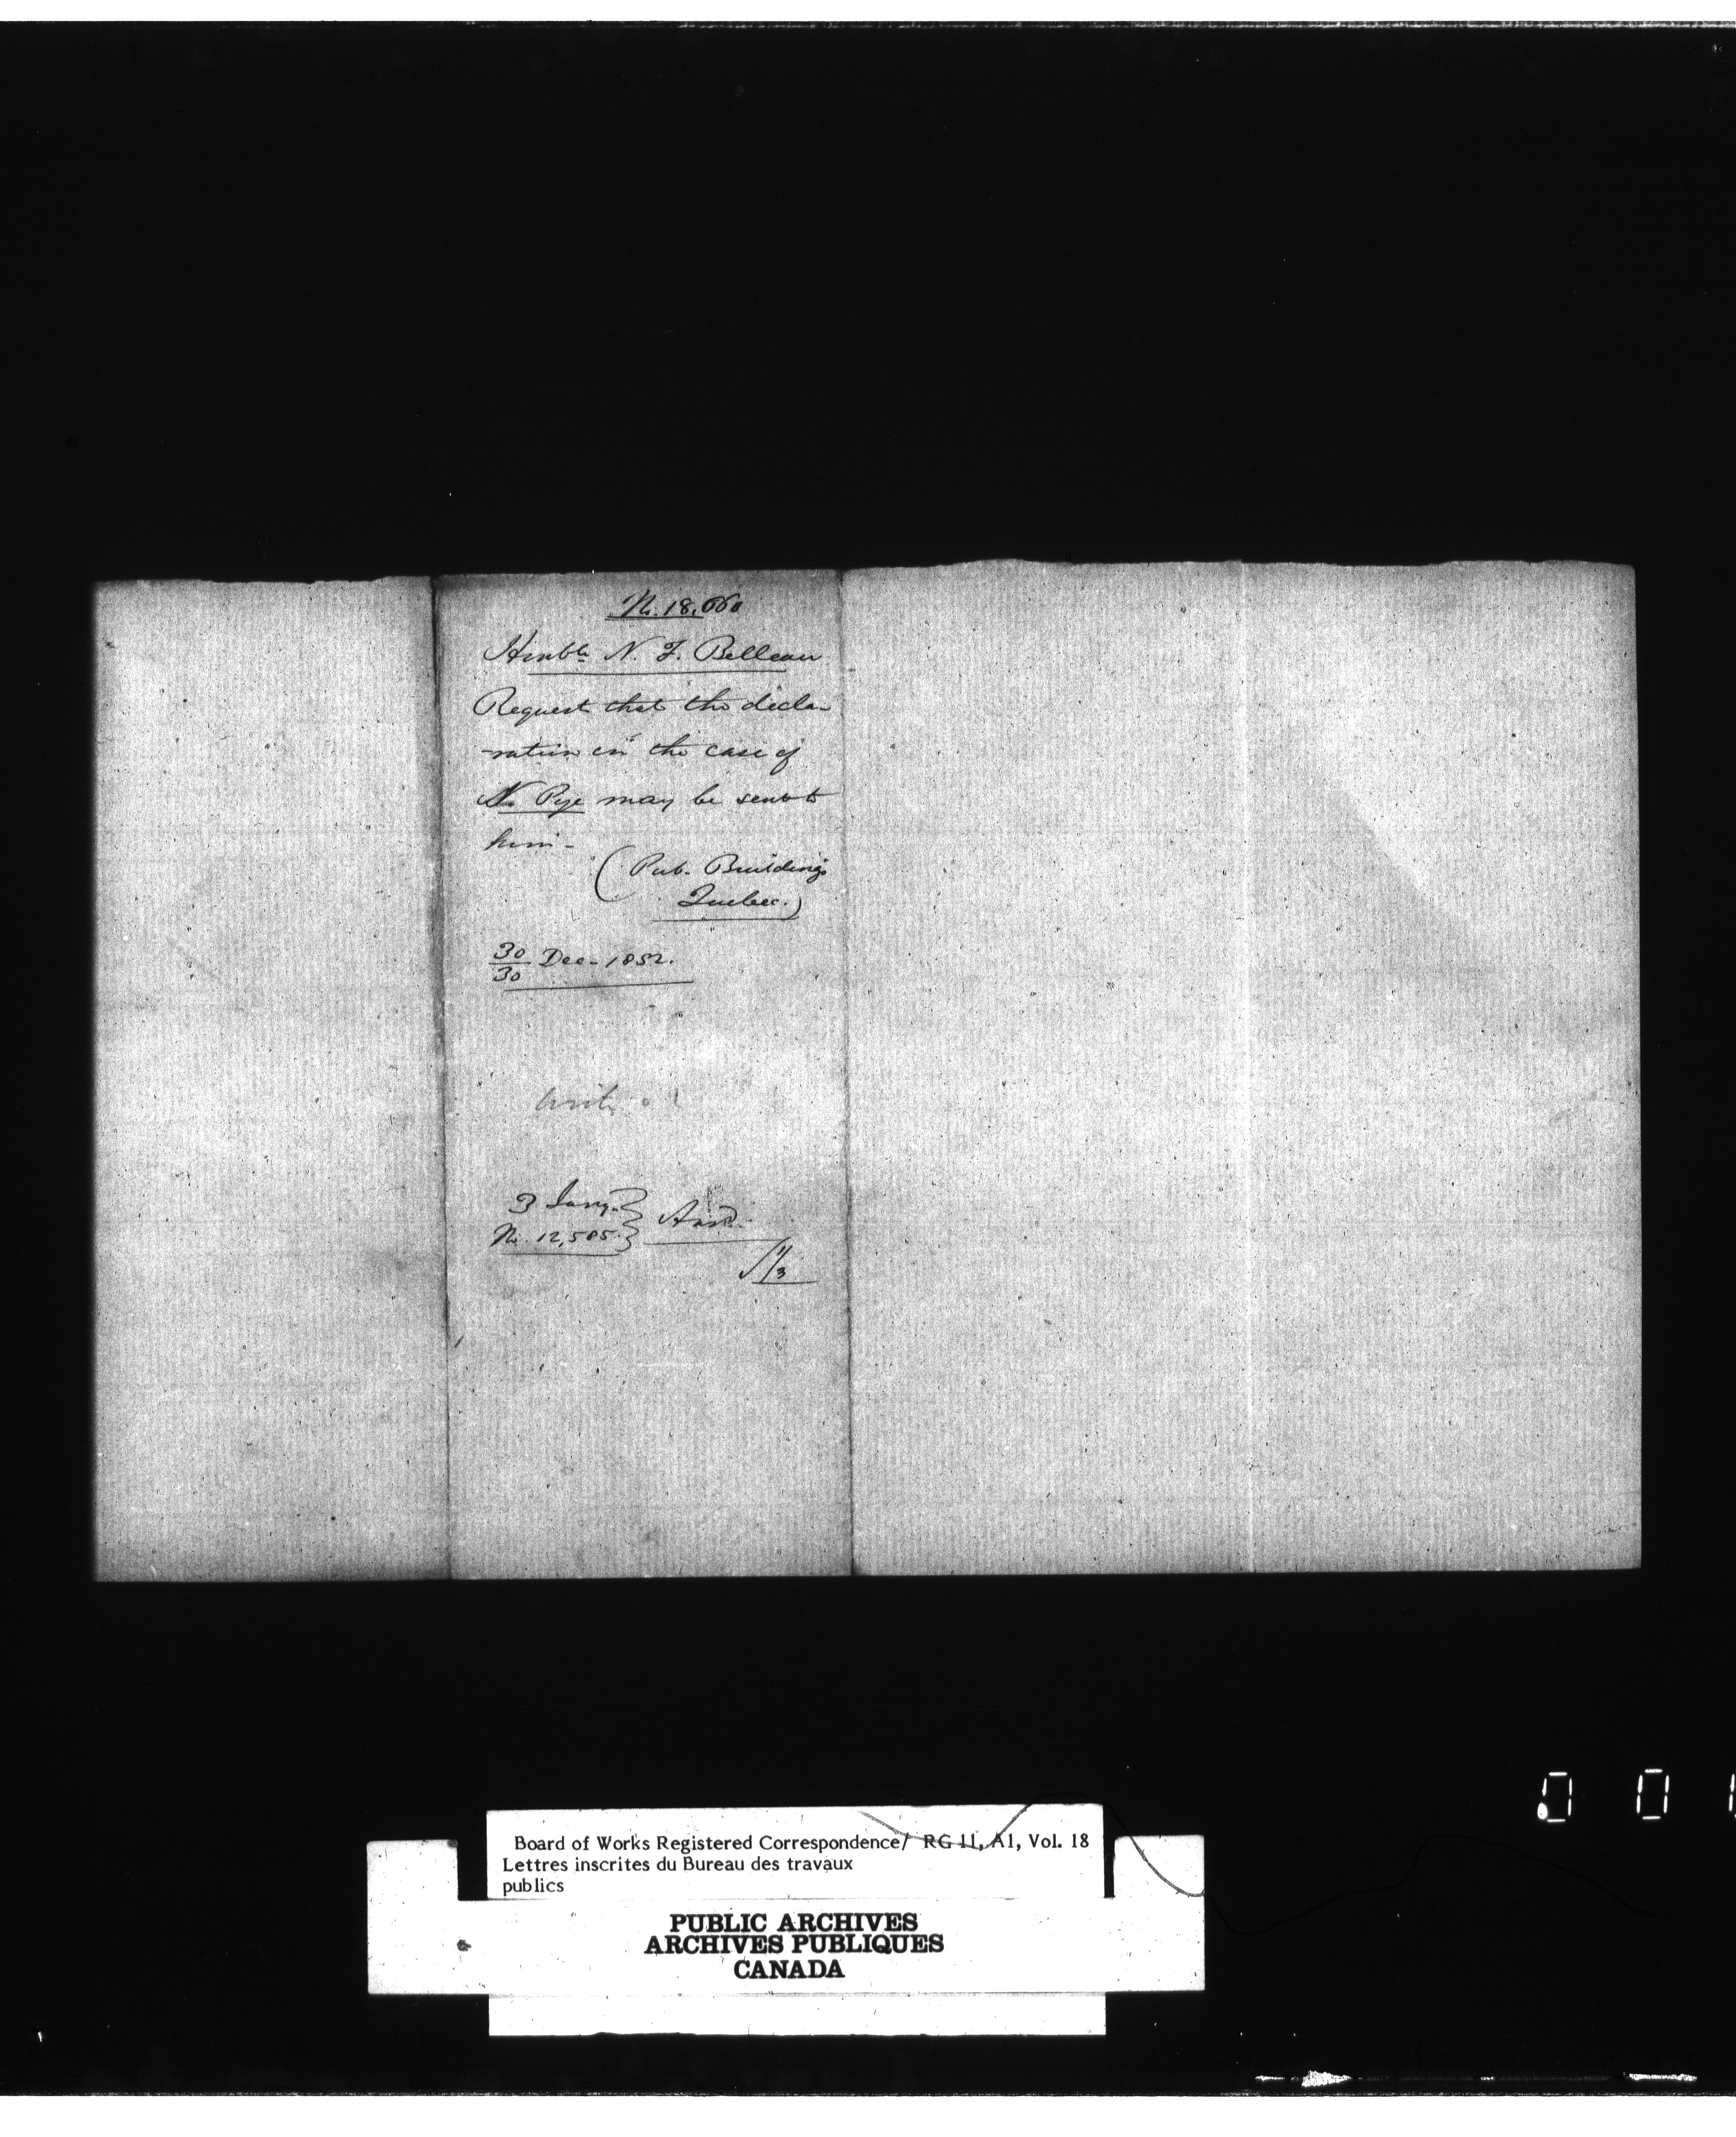 No. 18,660
Honble N. F. Belleau
Request that the decla-
-ration in the case of
N. Pye may be sent to
him -
(Pub. Buildings
Quebec.)
30/30 Dec - 1852.
3 Jany. }
No. 12,505. } Ansd.
1/3
Board of Works Registered Correspondence/ RG 11, A1, Vol. 18
Lettres inscrites du Bureau des travaux
publics
PUBLIC ARCHIVES
ARCHIVES PUBLIQUES
CANADA
0 0